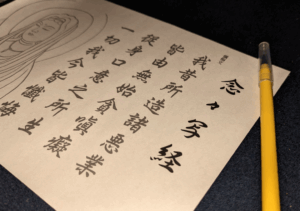 念々写経
我昔所造諸悪業
皆由無始貪瞋癡
従身口意之所生
一切我今皆懺悔